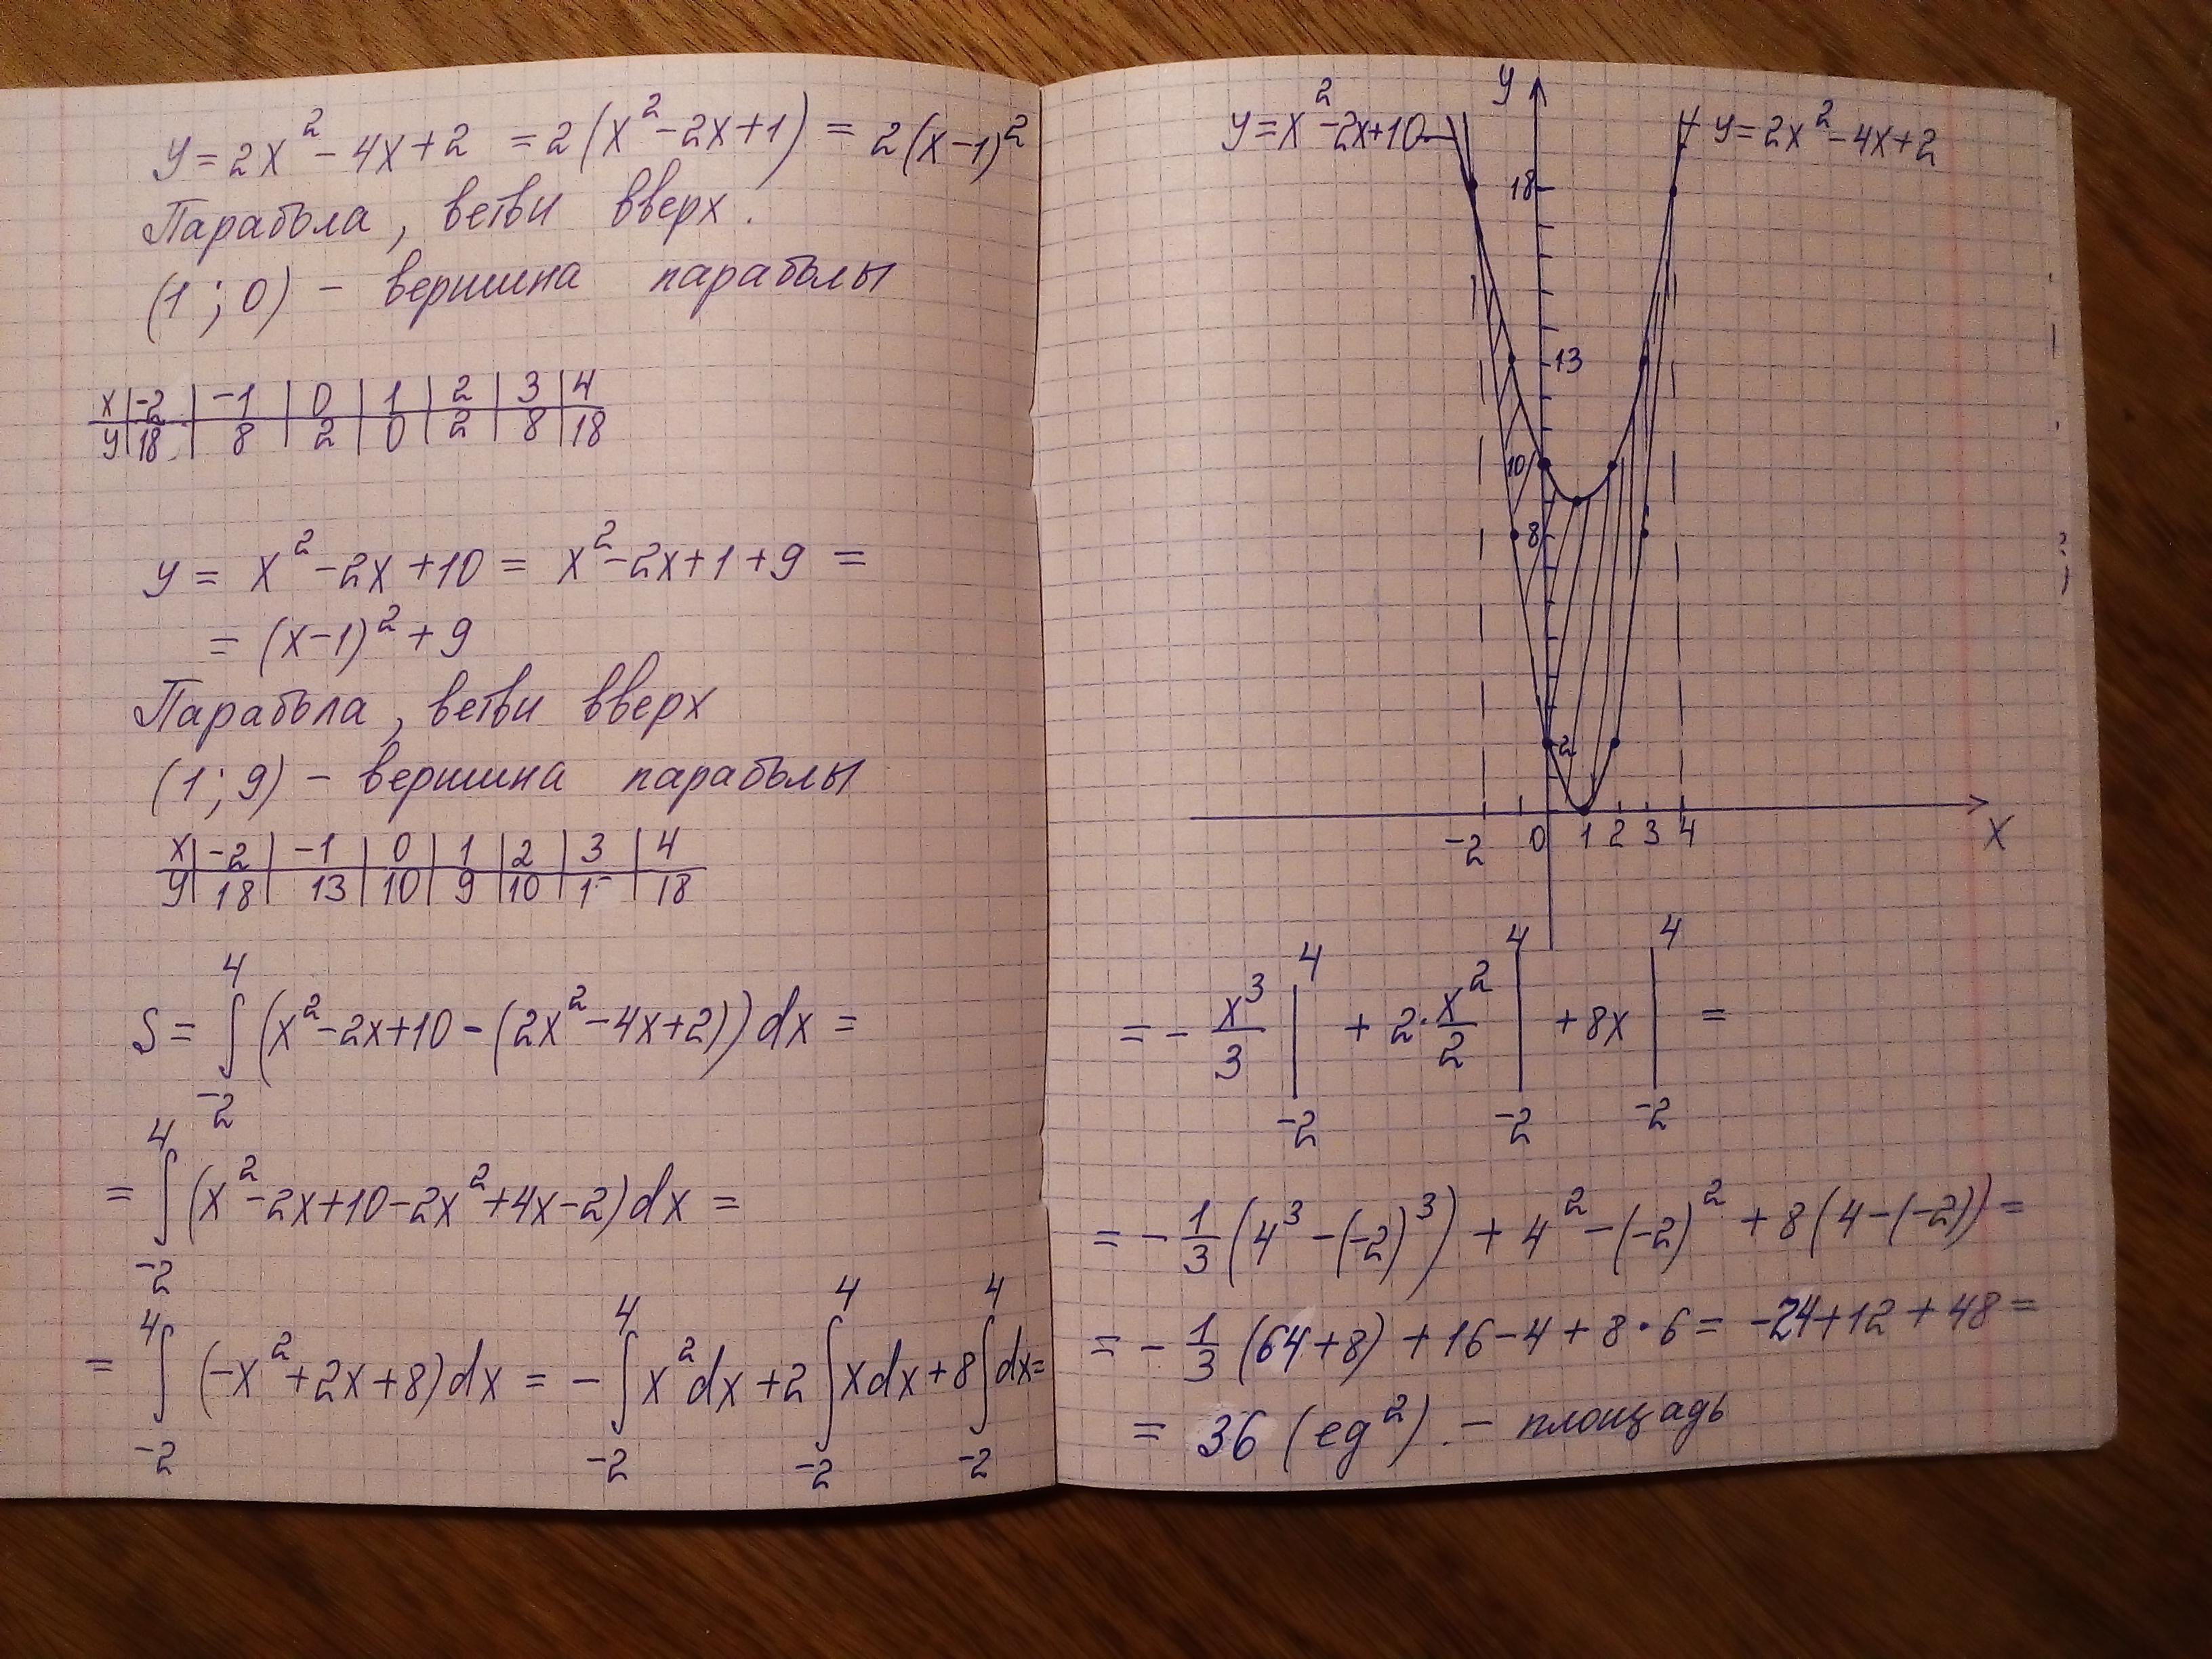 y = 2x² - 4x + 2 = 2(x² - 2x + 1) = 2(x-1)²
Парабола, ветви вверх.
(1; 0) - вершина параболы
x | -2 | -1 | 0 | 1 | 2 | 3 | 4
y | 18 | 8 | 2 | 0 | 2 | 8 | 18
y = x² - 2x + 10 = x² - 2x + 1 + 9 =
= (x-1)² + 9
Парабола, ветви вверх
(1; 9) - вершина параболы
x | -2 | -1 | 0 | 1 | 2 | 3 | 4
y | 18 | 13 | 10 | 9 | 10 | 1 | 18
S = ∫₋₂⁴ (x² - 2x + 10 - (2x² - 4x + 2)) dx =
= ∫₋₂⁴ (x² - 2x + 10 - 2x² + 4x - 2) dx =
= ∫₋₂⁴ (-x² + 2x + 8) dx = - ∫₋₂⁴ x² dx + 2 ∫₋₂⁴ x dx + 8 ∫₋₂⁴ dx =
y = x² - 2x + 10
y
y = 2x² - 4x + 2
18
13
10
8
2
-2 0 1 2 3 4
x
= - x³/3 |₋₂⁴ + 2·x²/2 |₋₂⁴ + 8x |₋₂⁴ =
= - 1/3 (4³ - (-2)³) + 4² - (-2)² + 8(4 - (-2)) =
= - 1/3 (64 + 8) + 16 - 4 + 8·6 = -24 + 12 + 48 =
= 36 (ед²). - площадь